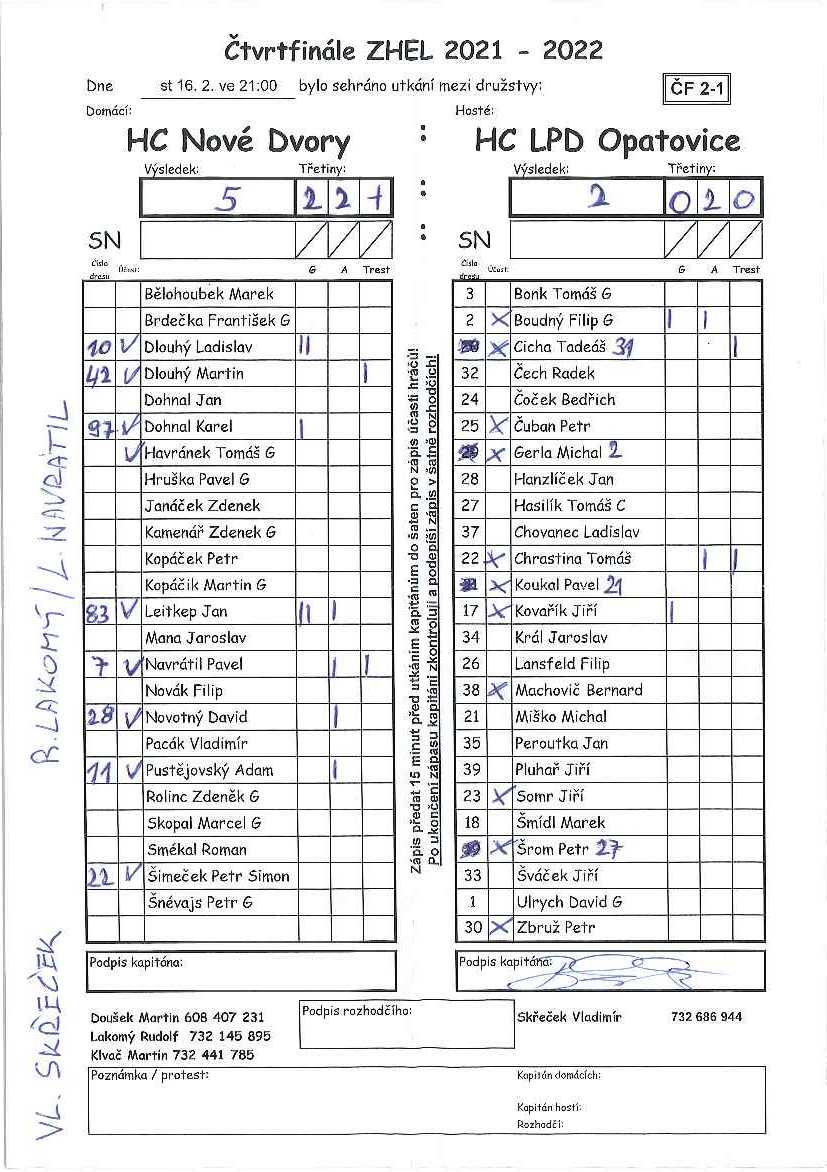 Čtvrtfinále ZHEL 2021 - 2022
Dne st 16. 2. ve 21:00 bylo sehráno utkání mezi družstvy: ČF 2-1
Domácí: Hosté:
HC Nové Dvory : HC LPD Opatovice
Výsledek: Třetiny: Výsledek: Třetiny:
5 2 2 1 : 2 0 2 0
SN : SN
Číslo dresu Účast: G A Trest Číslo dresu Účast: G A Trest
Bělohoubek Marek
Brdečka František G
10 V Dlouhý Ladislav II
42 V Dlouhý Martin I
Dohnal Jan
97 V Dohnal Karel I
V Havránek Tomáš G
Hruška Pavel G
Janáček Zdenek
Kamenář Zdenek G
Kopáček Petr
Kopáčik Martin G
83 V Leitkep Jan II I
Mana Jaroslav
7 V Navrátil Pavel I I
Novák Filip
28 V Novotný David I
Pacák Vladimír
11 V Pustějovský Adam I
Rolinc Zdeněk G
Skopal Marcel G
Smékal Roman
22 V Šimeček Petr Simon
Šnévajs Petr G
Zápis předat 15 minut před utkáním kapitánům do šaten pro zápis účasti hráčů!
Po ukončení zápasu kapitáni zkontrolují a podepíší zápis v šatně rozhodčích!
3 Bonk Tomáš G
2 X Boudný Filip G I I
X Cicha Tadeáš 31 I
32 Čech Radek
24 Čoček Bedřich
25 X Čuban Petr
X Gerla Michal 2
28 Hanzlíček Jan
27 Hasilík Tomáš C
37 Chovanec Ladislav
22 X Chrastina Tomáš I II
X Koukal Pavel 21
17 X Kovařík Jiří I
34 Král Jaroslav
26 Lansfeld Filip
38 X Machovič Bernard
21 Miško Michal
35 Peroutka Jan
39 Pluhař Jiří
23 X Somr Jiří
18 Šmídl Marek
X Šrom Petr 27
33 Šváček Jiří
1 Ulrych David G
30 X Zbruž Petr
R. LAKOMÝ / L. NAVRÁTIL
VL. SKŘEČEK
Podpis kapitána: Podpis kapitána:
Doušek Martin 608 407 231
Lakomý Rudolf 732 145 895
Klvač Martin 732 441 785
Podpis rozhodčího:
Skřeček Vladimír 732 686 944
Poznámka / protest:
Kapitán domácích:
Kapitán hostí:
Rozhodčí: